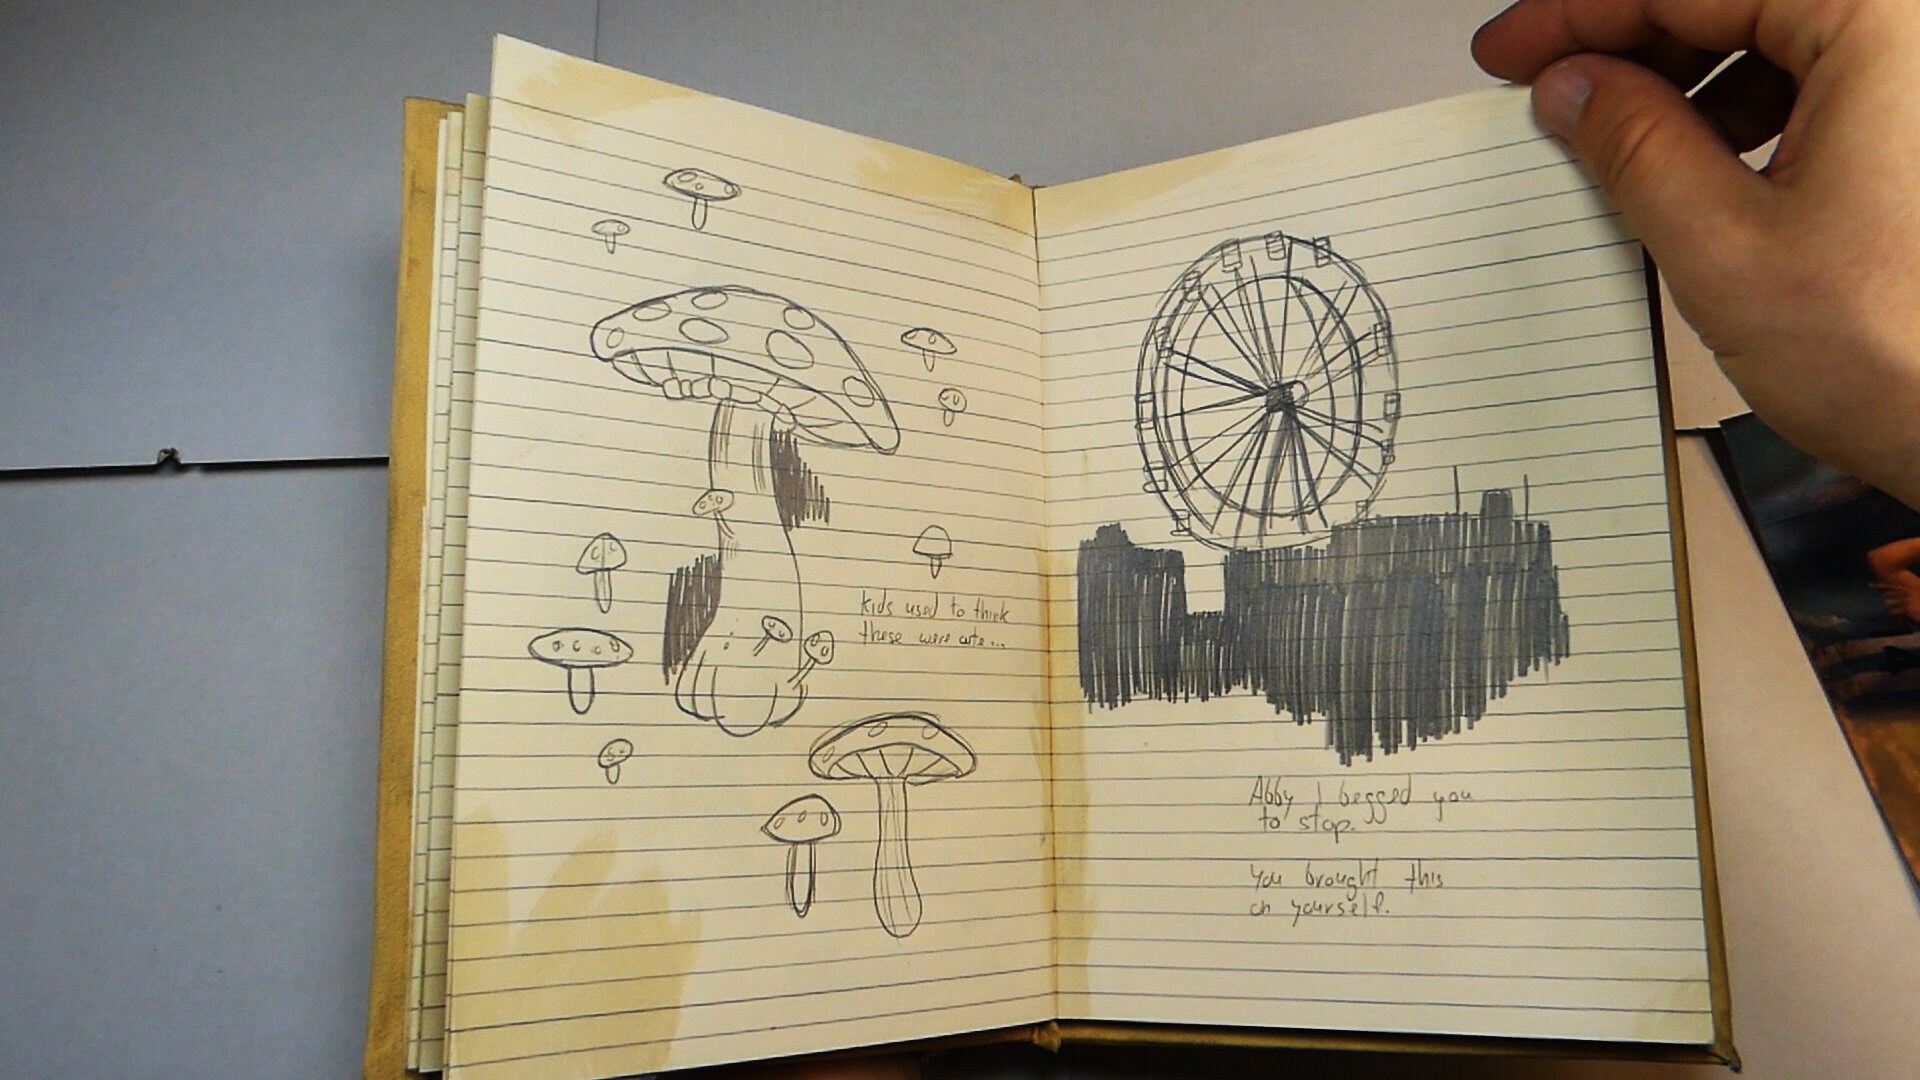 kids used to think
these were cute...
Abby I begged you
to stop.
You brought this
on yourself.